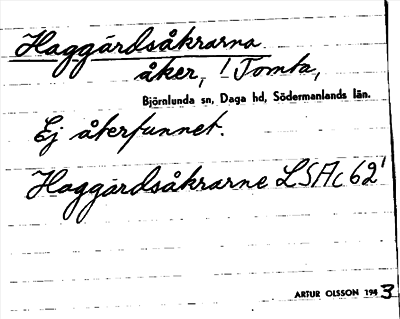 Haggårdsåkrarna
åker, ! Tomta,
Björnlunda sn, Daga hd, Södermanlands län.
Ej återfunnet.
Haggårdsåkrarne LSAc 62¹
ARTUR OLSSON 1943